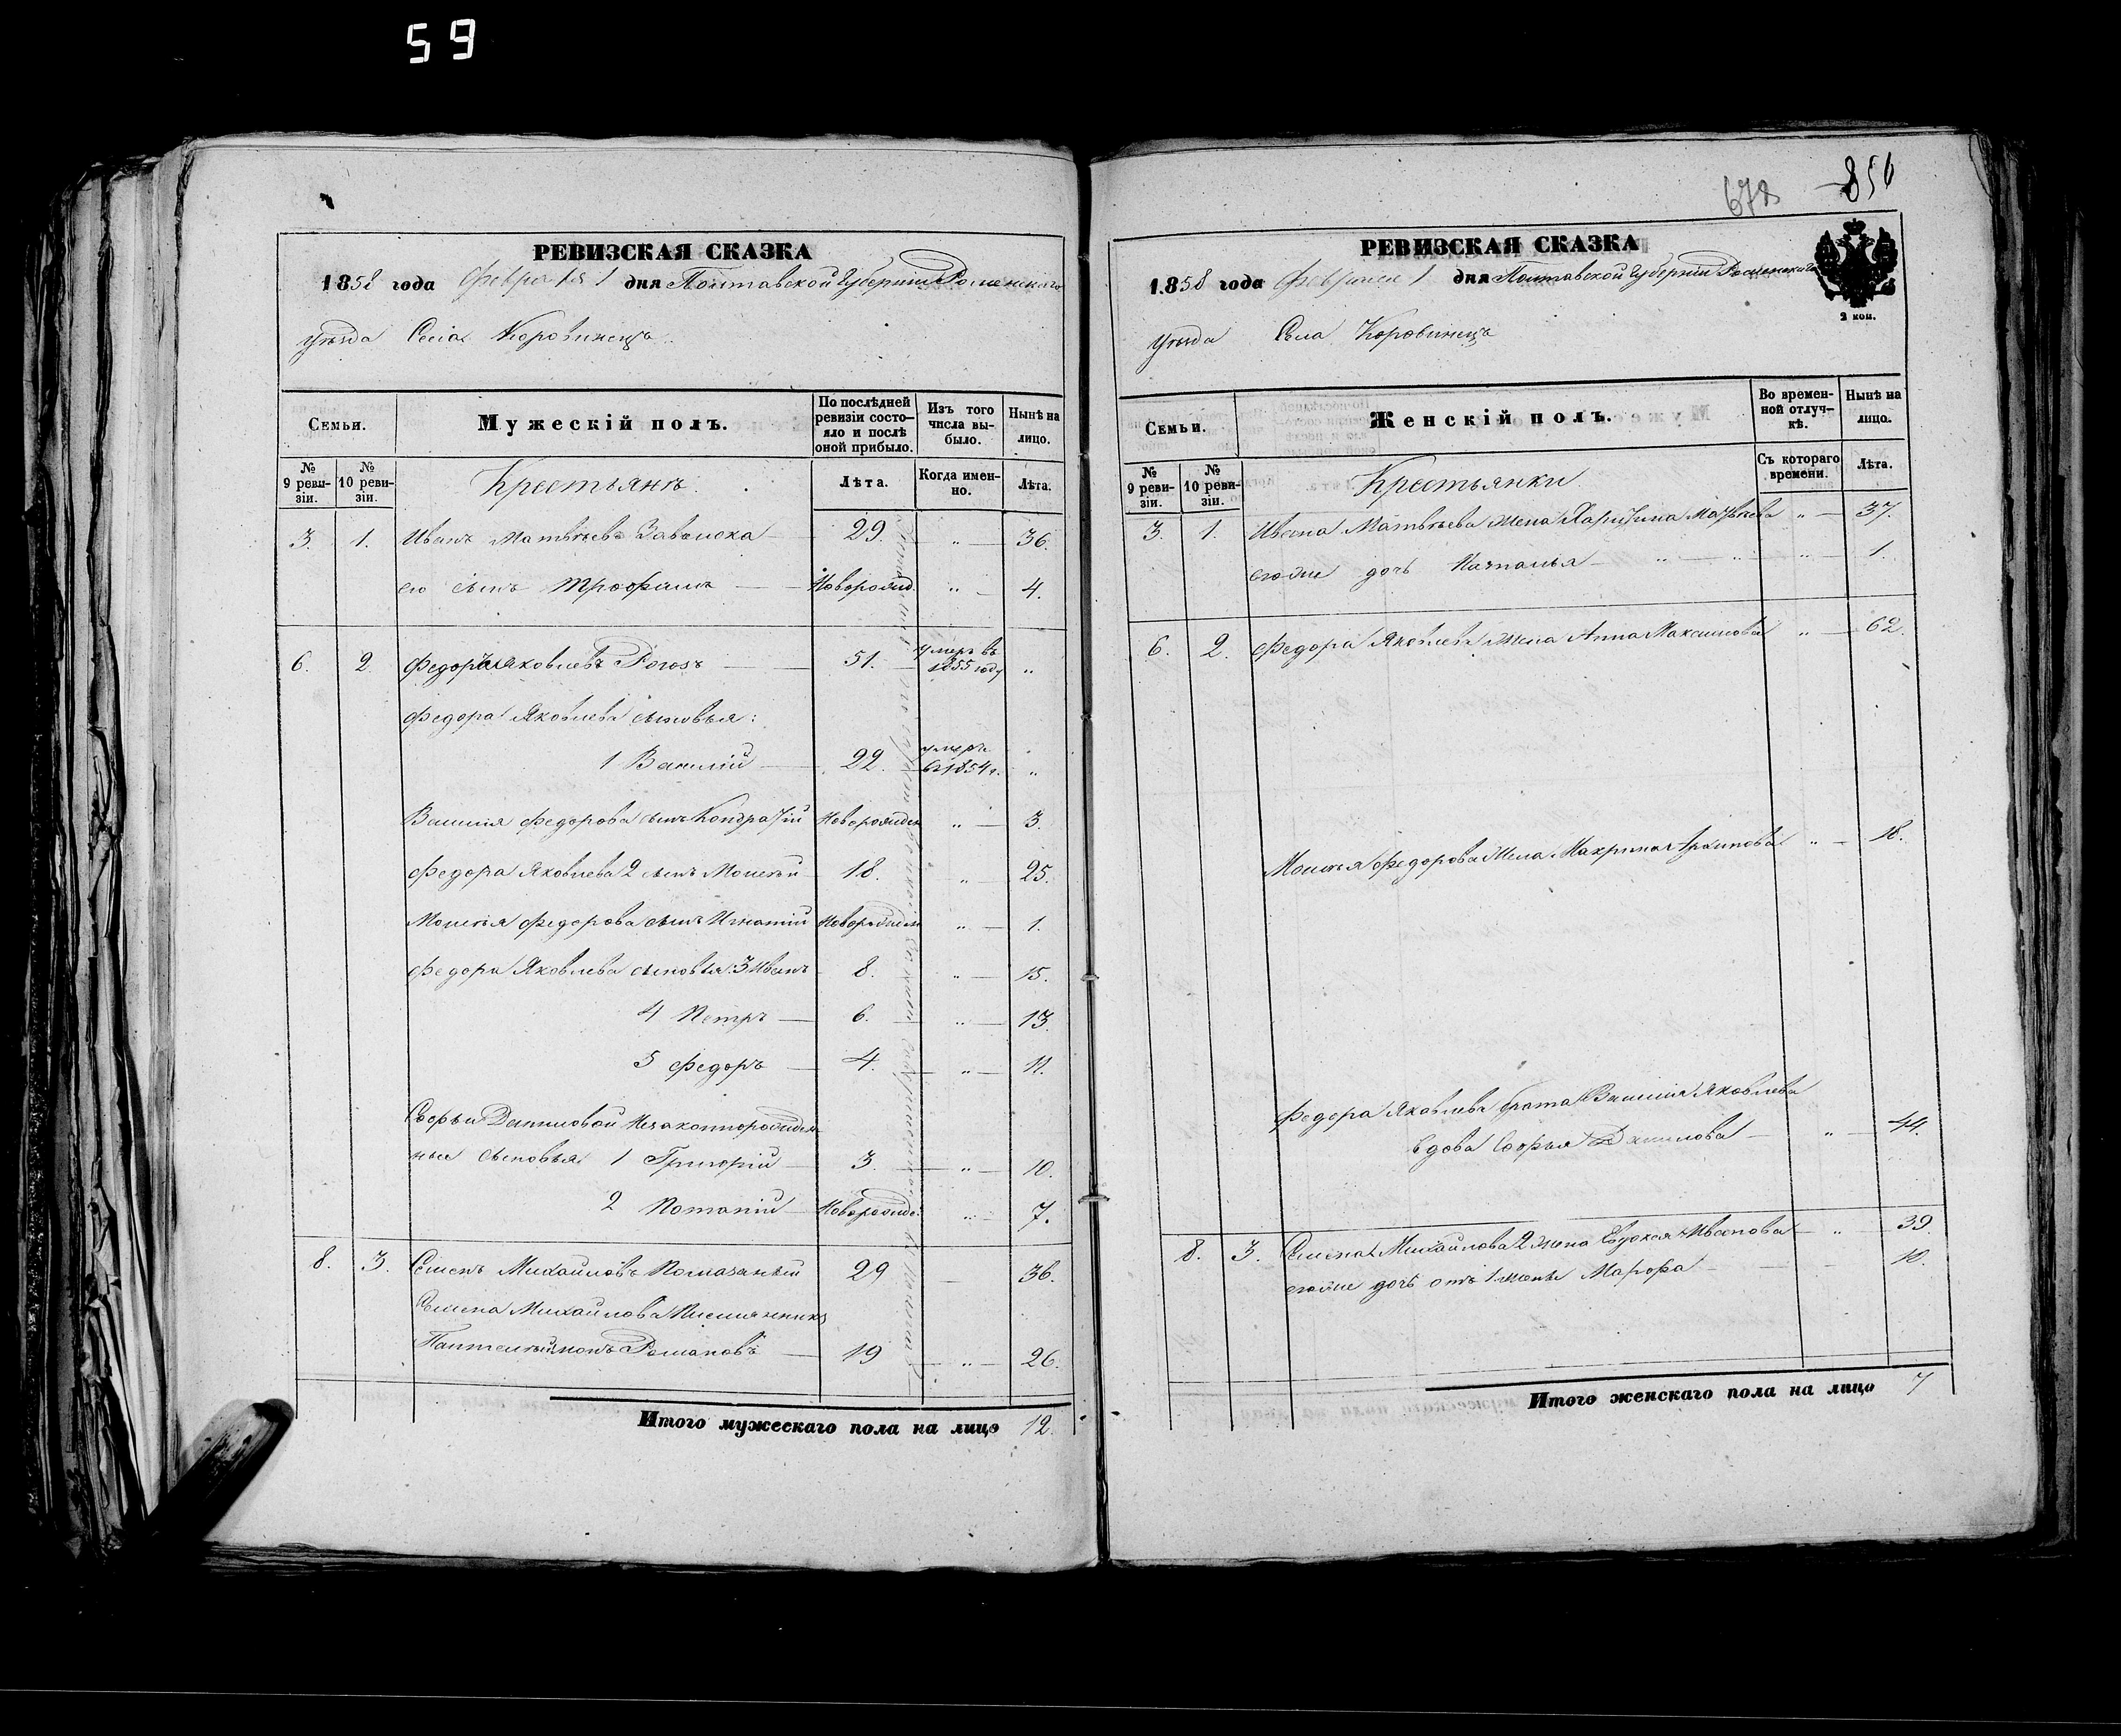 59
РЕВИЗСКАЯ СКАЗКА
1858 года Февраля 1 дня Полтавской Губерніи Роменскаго
уѣзда Села Коровинецъ
Семьи.
Мужескій полъ.
По послѣдней ревизіи состояло и послѣ оной прибыло.
Изъ того числа выбыло.
Нынѣ на лицо.
№ 9 ревизіи.
№ 10 ревизіи.
Крестьянъ.
Лѣта.
Когда именно.
Лѣта.
3. 1. Иванъ Матвѣевъ 29. „ 36.
его сынъ Трофимъ Новорожд. „ 4.
6. 2 Федоръ Яковлевъ Рогозъ 51. умеръ въ 1855 году „
Федора Яковлева сыновья:
1 Василій 22. умеръ въ 1854 г. „
Василія Федорова сынъ Кондратій Новорожден „ 3.
Федора Яковлева 2 сынъ Моисей 18. „ 25.
Моисея Федорова сынъ Игнатій Новорожден „ 1.
Федора Яковлева сыновья 3 Иванъ 8. „ 15.
4 Петръ 6. „ 13.
5 Федоръ 4. „ 11.
Софьи Даниловой Незаконнорожден
ные сыновья 1 Григорій 3. „ 10.
2 Потапій Новорожде. „ 7.
8. 3. Семенъ Михайловъ 29 36.
Семена Михайлова племянникъ
Пантелеймонъ Романовъ 19 „ 26.
Итого мужескаго пола на лицо 12.
678 856
РЕВИЗСКАЯ СКАЗКА
1858 года Февраля 1 дня Полтавской Губерніи Роменскаго
2 коп.
уѣзда Села Коровинецъ
Семьи.
Женскій полъ.
Во временной отлучкѣ.
Нынѣ на лицо.
№ 9 ревизіи.
№ 10 ревизіи.
Крестьянки
Съ котораго времени.
Лѣта.
3. 1. Ивана Матвѣева жена Харитина „ 37.
егоже дочь Наталья „ „ „ 1.
6. 2. Федора Яковлева жена Анна Максимова „ 62.
Моисея Федорова жена Макрина Архипова „ 18.
Федора Яковлева брата Василія Яковлева
вдова Софья Данилова „ 44.
8. 3. Семена Михайлова 2 жена Евдокія Иванова „ 39.
егоже дочь отъ 1 жены Марфа 10.
Итого женскаго пола на лицо 7